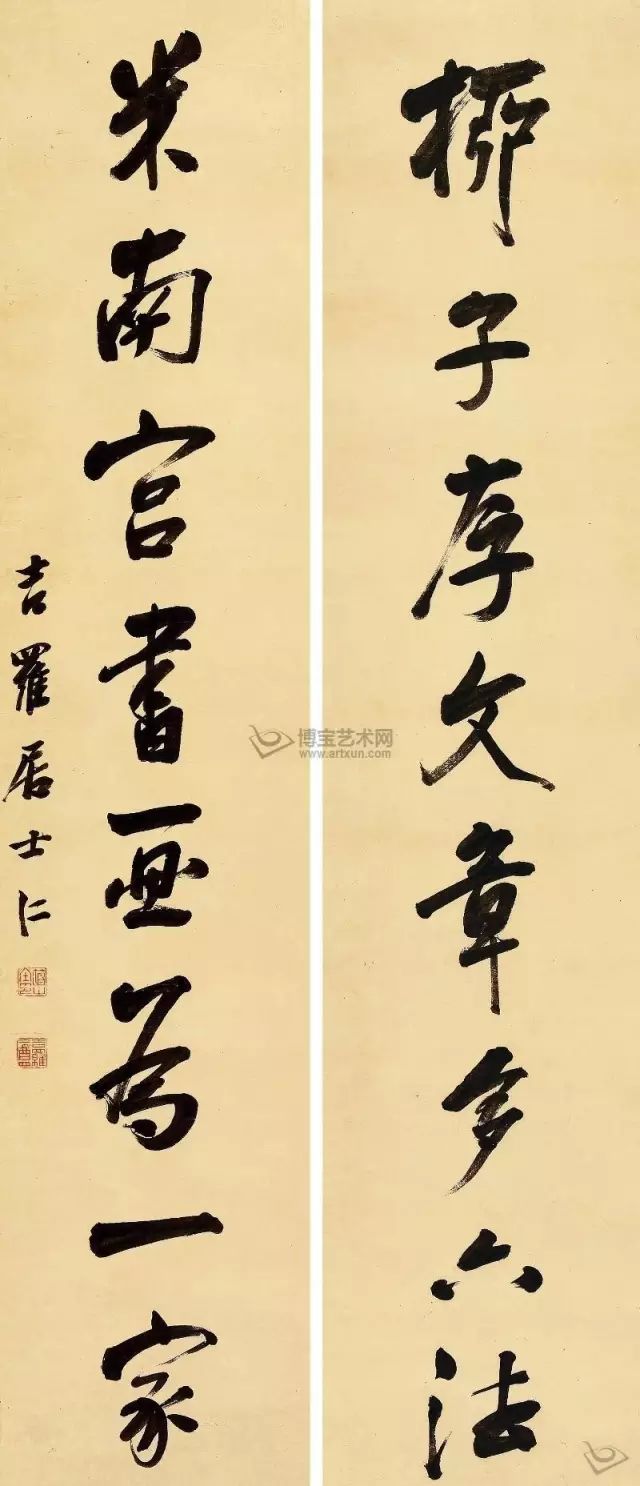 柳子厚文章多六法
米南宮書画為一家
吉羅居士仁
博宝艺术网
www.artxun.com